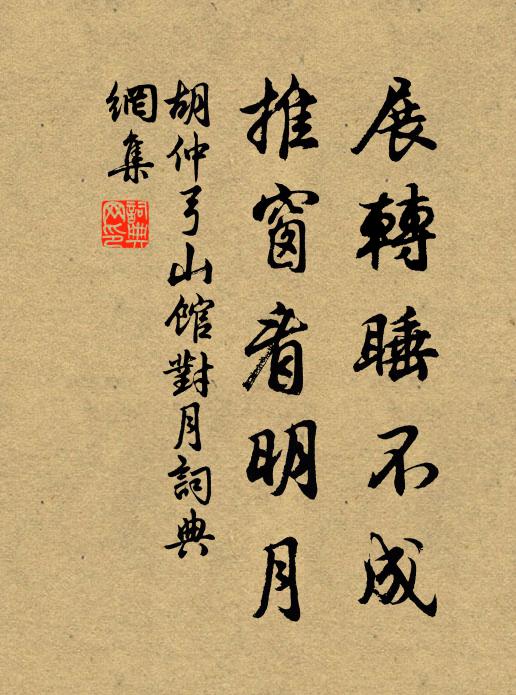 展轉睡不成
推窗看明月
胡仲弓山館對月詞典
網集
詞典
网印